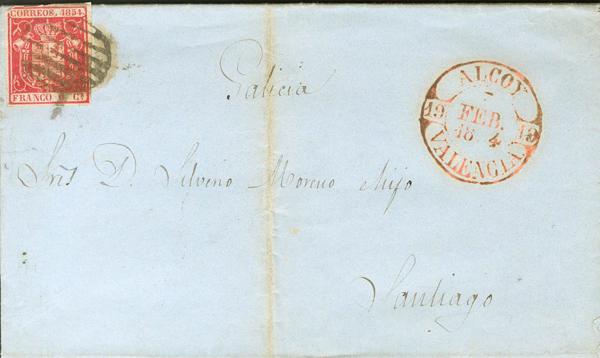 CORREOS. 1854.
FRANCO 6 Cs
Galicia
ALCOY
19 FEB. 19
18 4
VALENCIA
Sres D. Silvino Moreno Hijo
Santiago